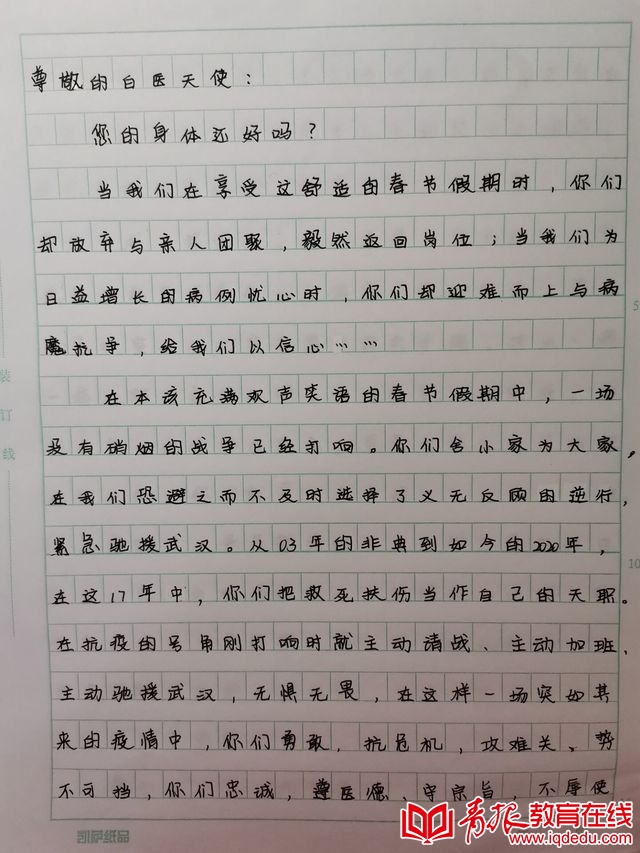 尊敬的白医天使：
您的身体还好吗？
当我们在享受这舒适的春节假期时，你们
却放弃与亲人团聚，毅然返回岗位；当我们为
日益增长的病例忧心时，你们却迎难而上与病
魔抗争，给我们以信心……
在本该充满欢声笑语的春节假期中，一场
没有硝烟的战争已经打响。你们舍小家为大家，
在我们恐避之而不及时选择了义无反顾的逆行，
紧急驰援武汉。从03年的非典到如今的2020年，
在这17年中，你们把救死扶伤当作自己的天职。
在抗疫的号角刚打响时就主动请战、主动加班、
主动驰援武汉，无惧无畏，在这样一场突如其
来的疫情中，你们勇敢，抗危机，攻难关、势
不可挡，你们忠诚，尊医德、守宗旨，不辱使
装
订
线
5
10
凯萨纸品
青报教育在线
www.iqdedu.com